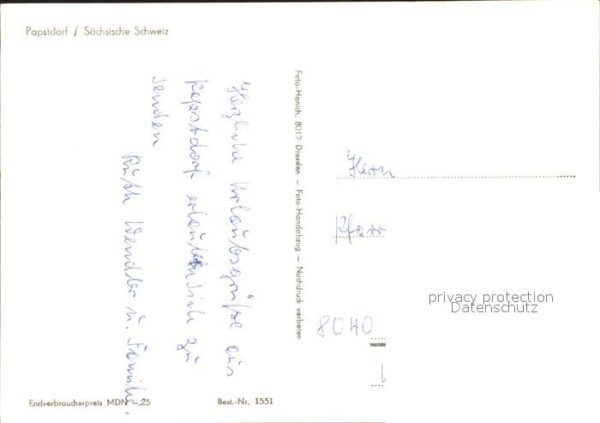 Papstdorf / Sächsische Schweiz
Herzliche Urlaubsgrüße aus
Papstdorf erlauben sich zu
senden
Ruth Wendler u. Familie.
Foto-Handzug — Nachdruck verboten
Herrn
Pfarr
8040
privacy protection
Datenschutz
Endverbraucherpreis MDN -,25
Best.-Nr. 1551